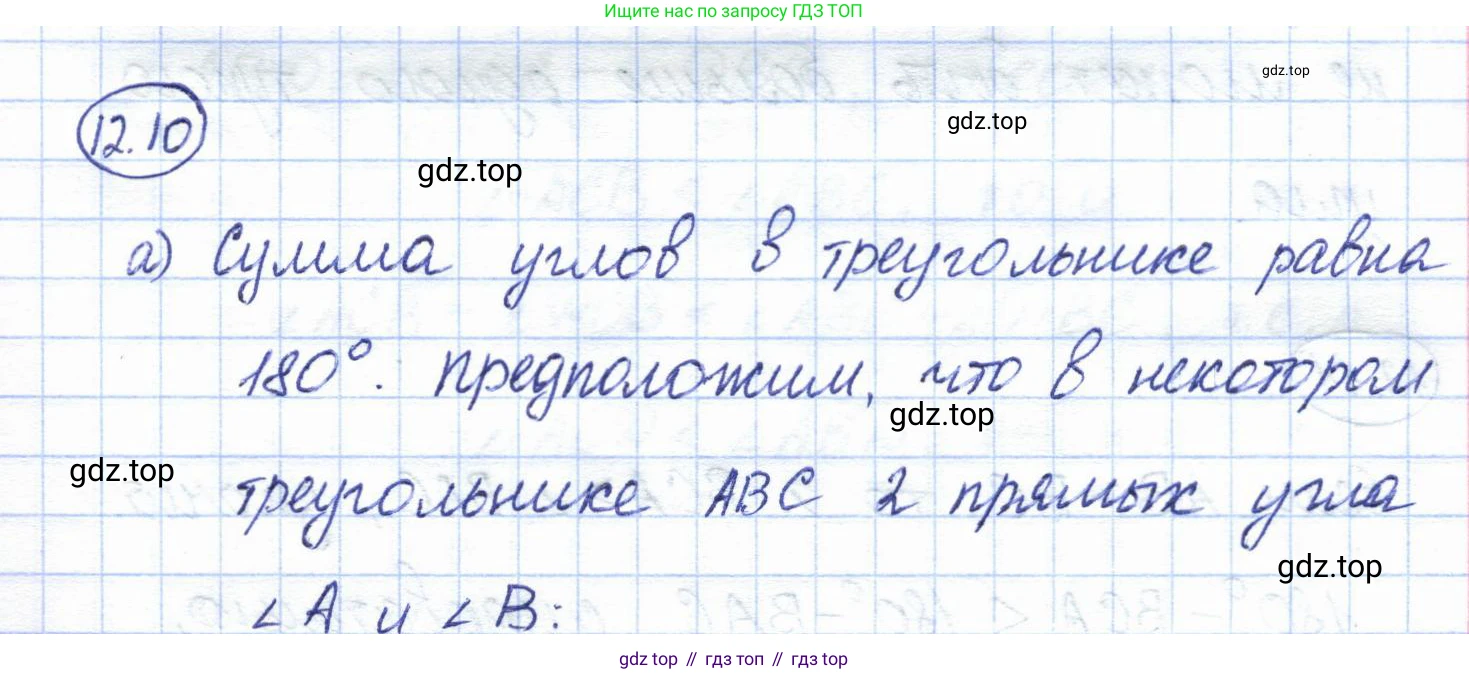 Ищите нас по запросу ГДЗ ТОП
gdz.top
gdz.top
12.10
gdz.top
а) Сумма углов в треугольнике равна
180°. Предположим, что в некотором
gdz.top
gdz.top
треугольнике ABC 2 прямых угла
gdz.top
∠A и ∠B:
gdz top // гдз топ // гдз top